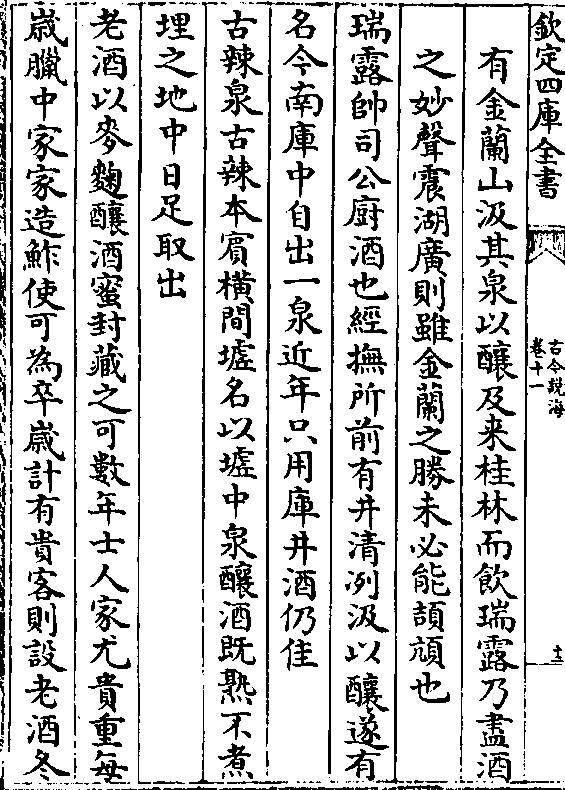 欽定四庫全書
古今說海
卷十一
十三
有金蘭山汲其泉以釀及来桂林而飲瑞露乃盡酒
之妙聲震湖廣則雖金蘭之勝未必能頡頏也
瑞露帥司公厨酒也經撫所前有井清冽汲以釀遂有
名今南庫中自出一泉近年只用庫井酒仍佳
古辣泉古辣本賔横間墟名以墟中泉釀酒既熟不煮
埋之地中日足取出
老酒以麥麴釀酒蜜封藏之可數年士人家尤貴重每
歳臘中家家造鮓使可為卒歳計有貴客則設老酒冬